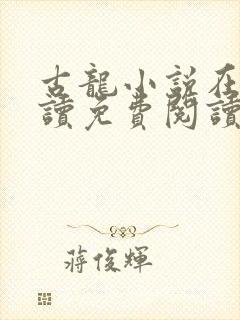 古龍小說在
讀免費閱讀
蔣俊輝